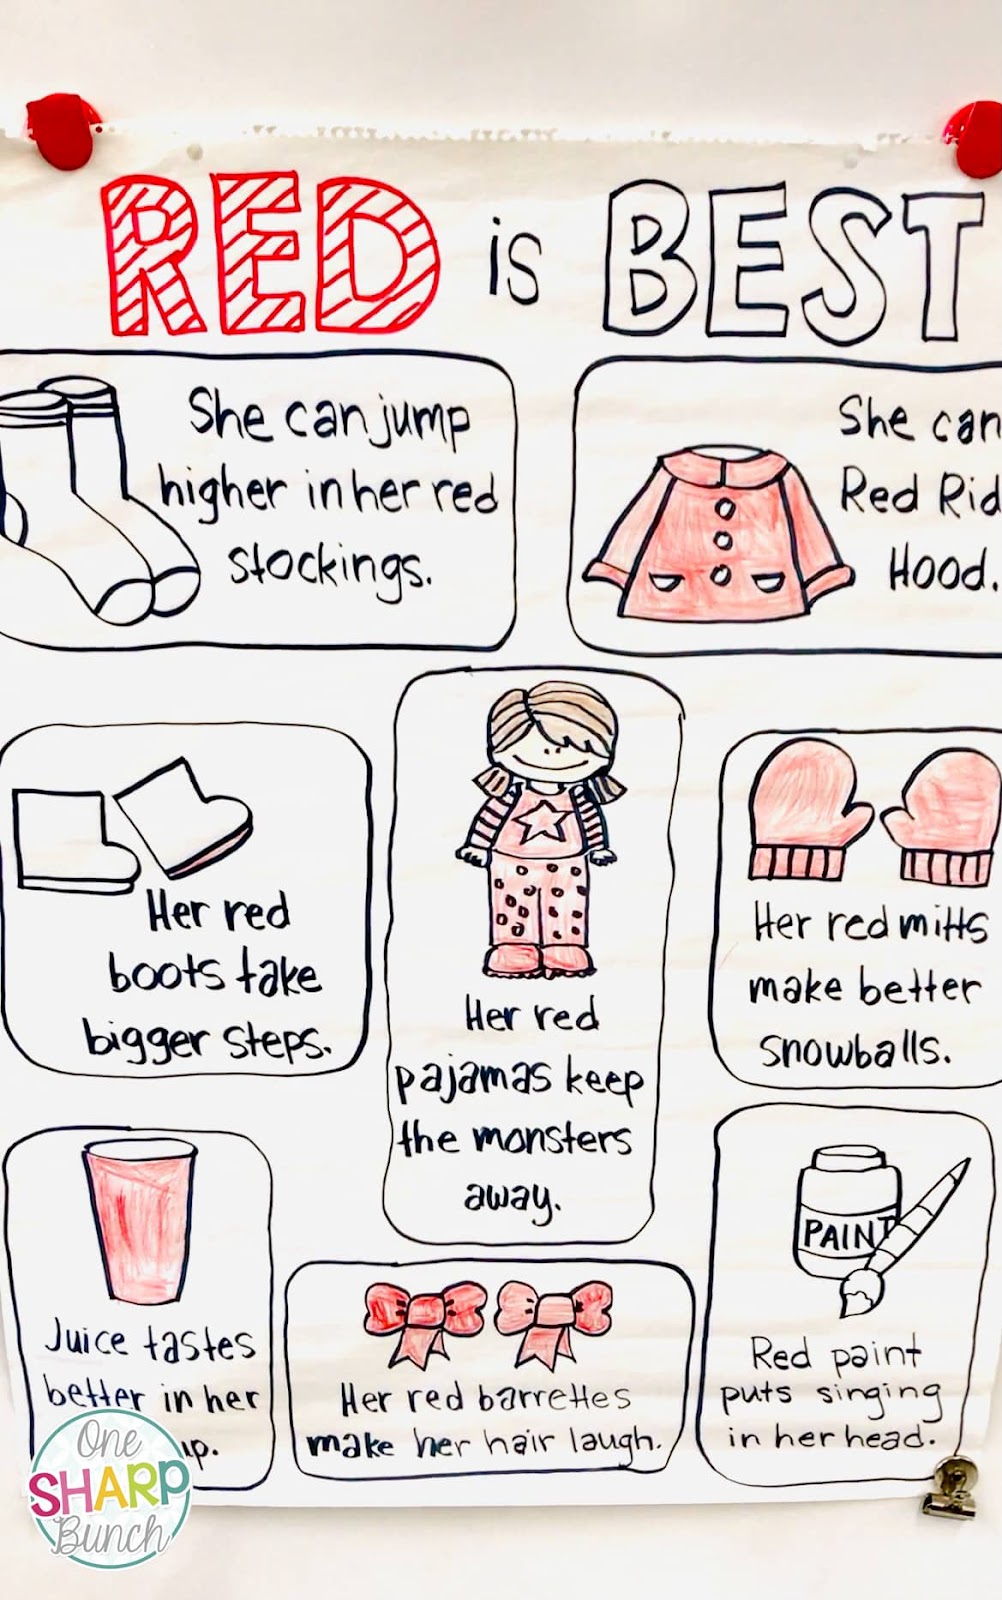 RED is BEST
She can jump
higher in her red
stockings.
She can
Red Rid
Hood.
Her red
boots take
bigger steps.
Her red
pajamas keep
the monsters
away.
Her red mitts
make better
snowballs.
Juice tastes
better in her
up.
Her red barrettes
make her hair laugh.
PAINT
Red paint
puts singing
in her head.
One
SHARP
Bunch